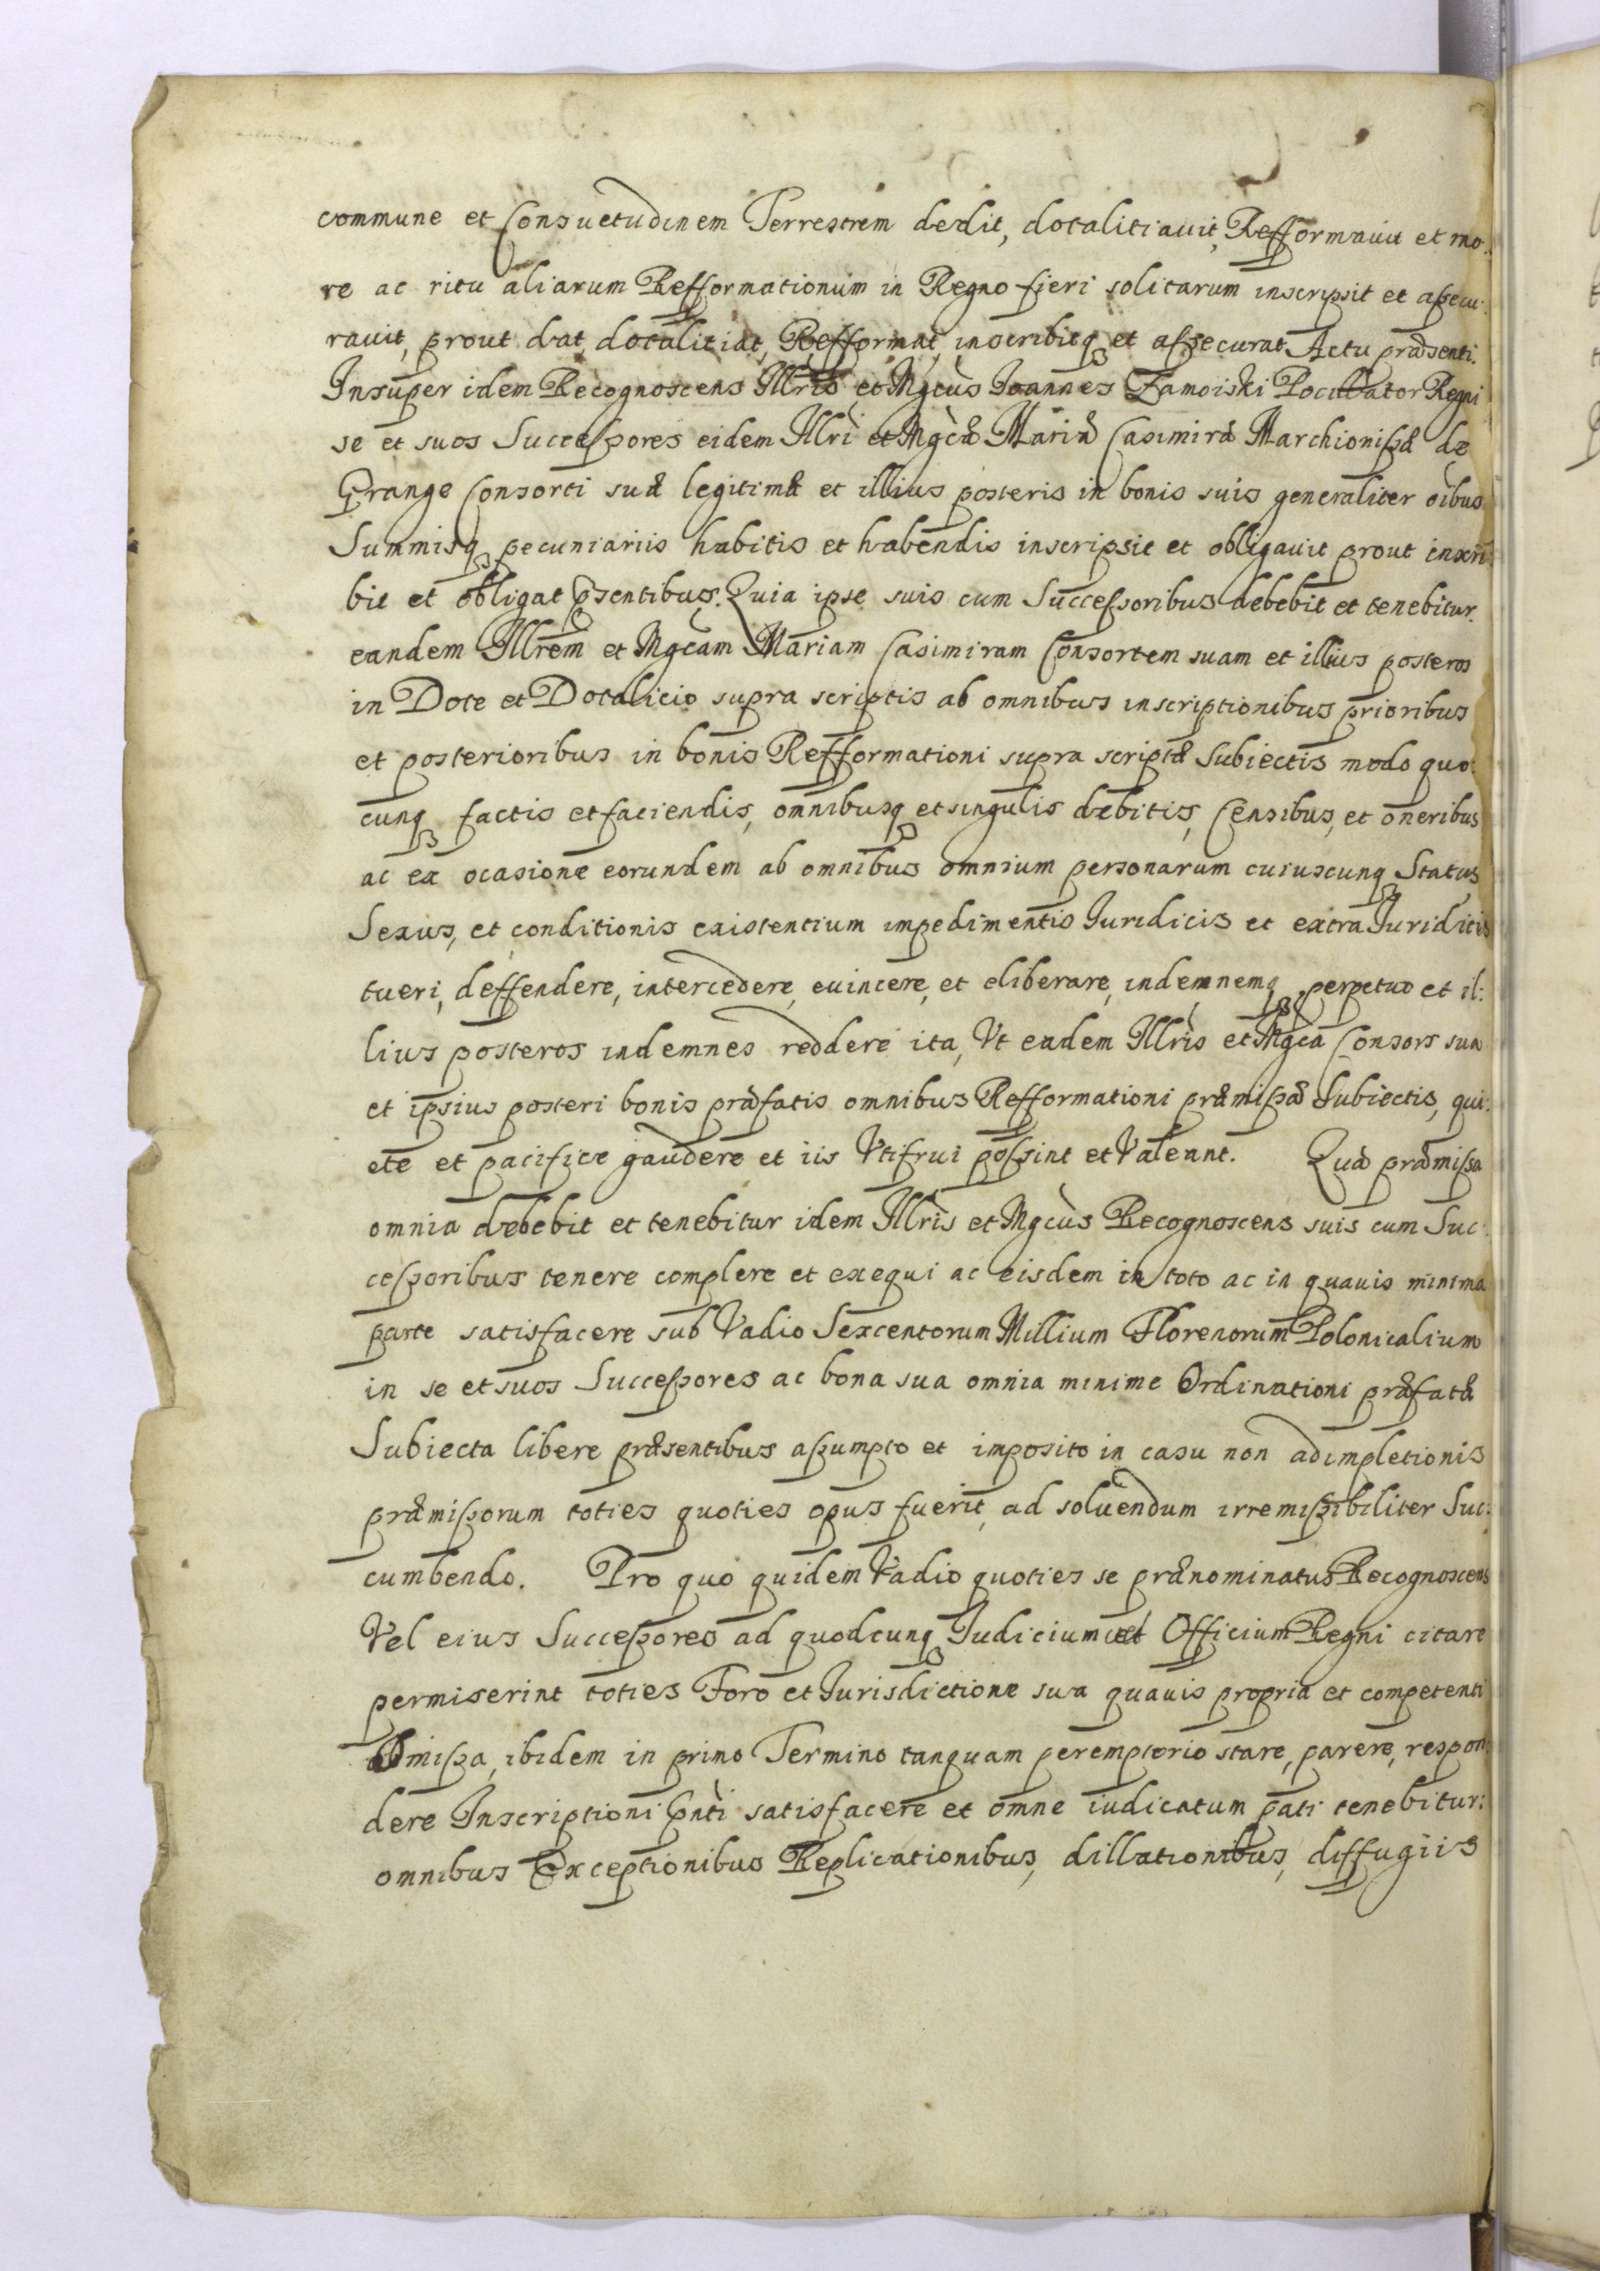 commune et Consuetudinem Terrestrem dedit, dotalitiauit, Refformauit et mo:
re ac ritu aliarum Refformationum in Regno fieri solitarum inscripsit et assecu:
rauit, prout dat, dotalitiat, Refformat, inscribitq et assecurat Actu præsenti.
Insuper idem Recognoscens Illris et Mgcus Joannes Zamoiski Pocillator Regni
se et suos Successores eidem Illri et Mgcæ Mariæ Casimiræ Marchionissæ de
Grange Consorti suæ legitimæ et illius posteris in bonis suis generaliter oibus
Summisq pecuniariis habitis et habendis inscripsit et obligauit prout inscri
bit et obligat psentibus. Quia ipse suis cum Successoribus debebit et tenebitur
eandem Illrem et Mgcam Mariam Casimiram Consortem suam et illius posteros
in Dote et Dotalicio supra scriptis ab omnibus inscriptionibus prioribus
et posterioribus in bonis Refformationi supra scriptæ Subiectis modo quo:
cunq factis et faciendis, omnibusq et singulis debitis, Censibus, et oneribus
ac ex ocasione eorundem ab omnibus omnium personarum cuiuscunq Status
Sexus, et conditionis existentium impedimentis Juridicis et extra Juridicis
tueri, deffendere, intercedere, euincere, et eliberare, indemnemq perpetuo et il:
lius posteros indemnes reddere ita, Vt eadem Illris et Mgca Consors sua
et ipsius posteri bonis præfatis omnibus Refformationi præmissæ Subiectis, qui:
ete et pacifice gaudere et iis Vtifrui possint et Valeant. Quæ præmissa
omnia debebit et tenebitur idem Illris et Mgcus Recognoscens suis cum Suc:
cessoribus tenere complere et exequi ac eisdem in toto ac in quauis minima
parte satisfacere sub Vadio Sexcentorum Millium Florenorum Polonicalium
in se et suos Successores ac bona sua omnia minime Ordinationi præfatæ
Subiecta libere præsentibus assumpto et imposito in casu non adimpletionis
præmissorum toties quoties opus fuerit, ad soluendum irremissibiliter Suc:
cumbendo. Pro quo quidem Vadio quoties se prænominatus Recognoscens
Vel eius Successores ad quodcunq Judicium uel Officium Regni citare
permiserint toties Foro et Jurisdictione sua quauis propria et competenti
Omissa, ibidem in primo Termino tanquam peremptorio stare, parere, respon
dere Inscriptioni pnti satisfacere et omne iudicatum pati tenebitur:
omnibus Exceptionibus Replicationibus, dillationibus, diffugiis